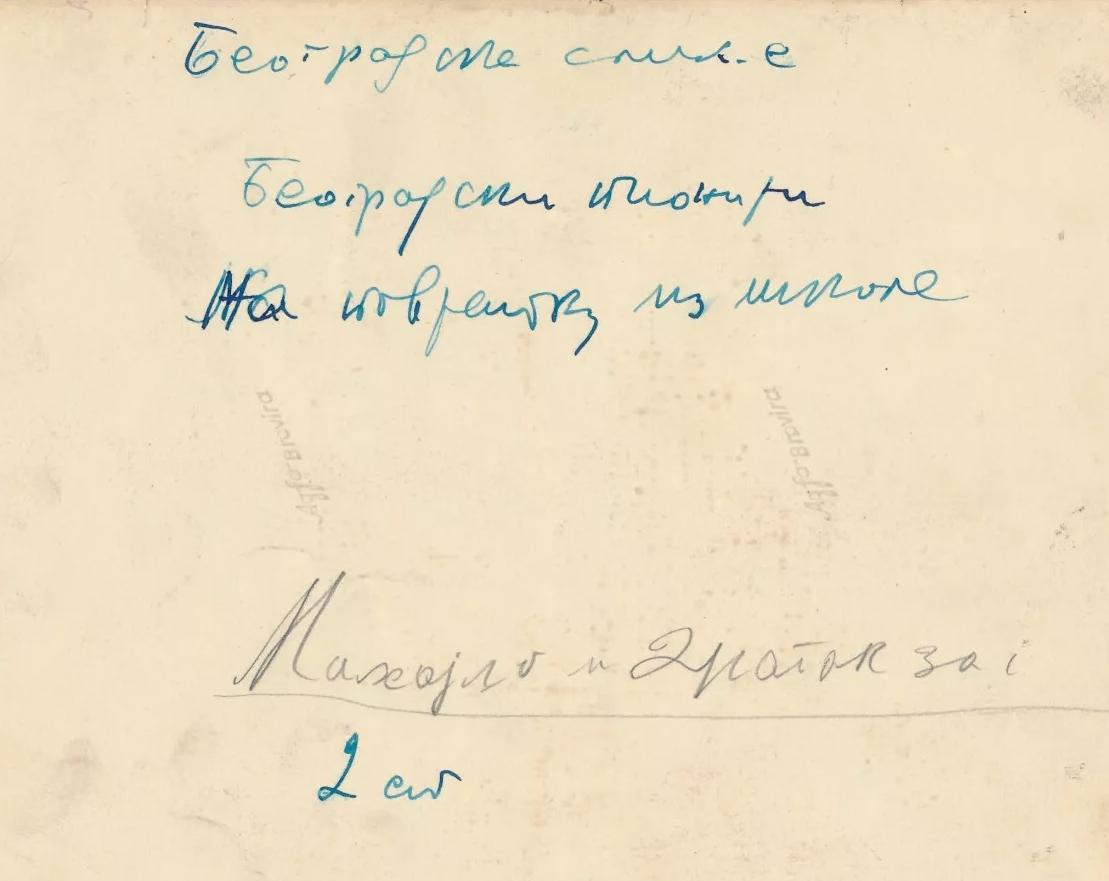 Београдске слике
Београдски пионири
На повратку из школе
Agfa-Brovira
Agfa-Brovira
Михајло и за
2 ст